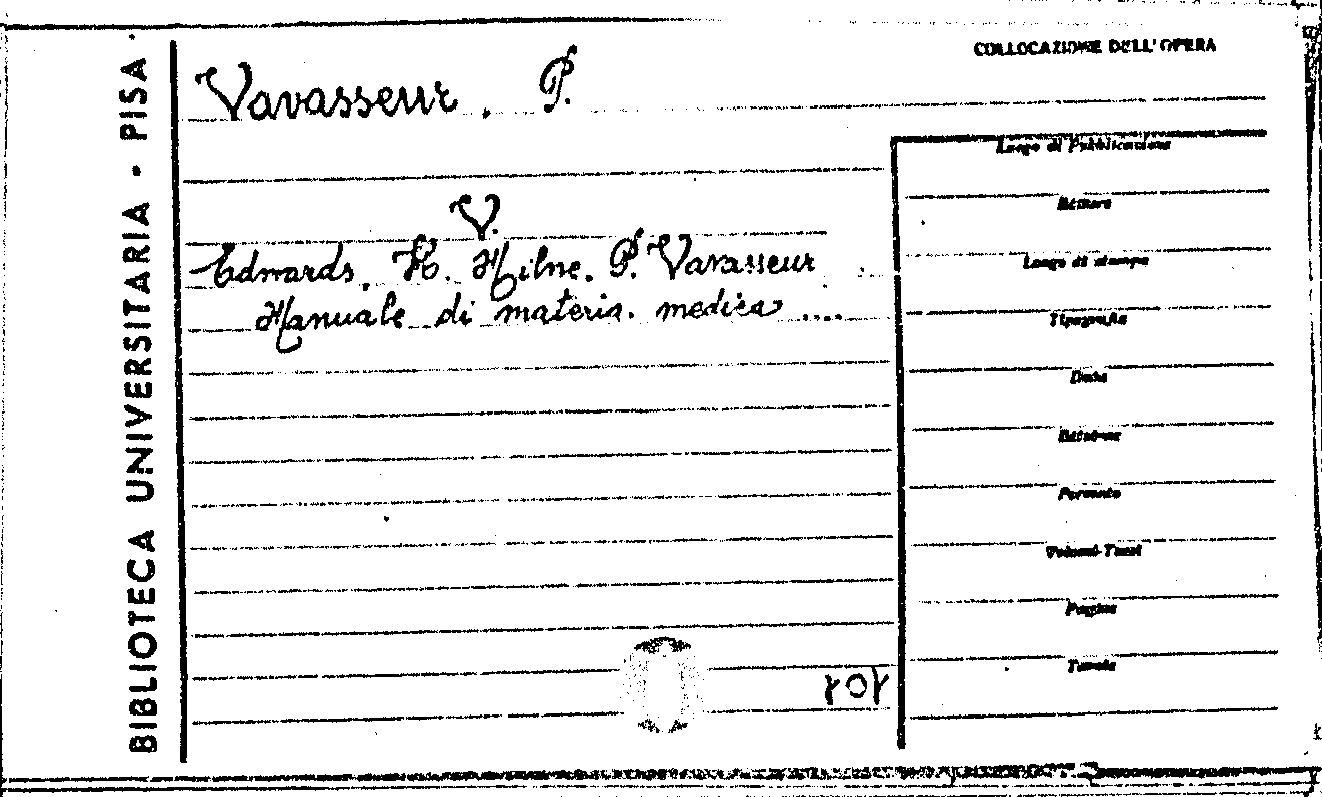 BIBLIOTECA UNIVERSITARIA - PISA
COLLOCAZIONE DELL'OPERA
Vavasseur, P.
V.
Edwards, H. Milne, P. Vavasseur
Manuale di materia medica ....
Luogo di Pubblicazione
Editore
Luogo di stampa
Tipografia
Data
Edizione
Formato
Volumi-Tomi
Pagine
Tavole